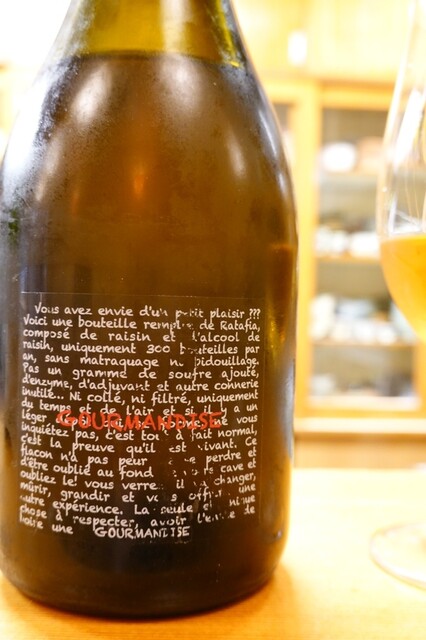 Vous avez envie d'un petit plaisir ???
Voici une bouteille remplie de Ratafia,
composé de raisin et d'alcool de
raisin, uniquement 300 bouteilles par
an, sans matraquage ni bidouillage.
Pas un gramme de soufre ajouté,
d'enzyme, d'adjuvant et autre connerie
inutile... Ni collé, ni filtré, uniquement
du temps et de l'air et si il y a un
léger ne vous
GOURMANDISE
inquiétez pas, c'est tout à fait normal,
c'est la preuve qu'il est vivant. Ce
flacon n'a pas peur se perdre et
d'être oublié au fond cave et
oubliez le! vous verrez il changer,
mûrir, grandir et vous offrir une
autre expérience. La seule et unique
chose à respecter, avoir l'envie de
boire une GOURMANDISE